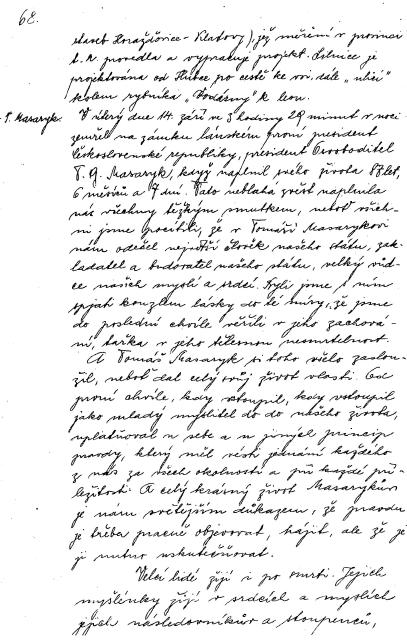 68.
staveb Horažďovice - Klatovy) jíž měření v prosinci
t. r. provedla a vypracuje projekt. Silnice je
projektována od Hubec po cestě ke vsi, dále „ulicí"
kolem rybníka „Vodárny" k lesu.
T. Masaryk. V úterý dne 14. září ve 3 hodiny 29 minut v noci
zemřel na zámku lánském první president
Československé republiky, president Osvoboditel
T. G. Masaryk, když naplnil svého života 87 let,
6 měsíců a 7 dní. Tato neblahá zvěst naplnila
nás všechny těžkým smutkem, neboť všich-
ni jsme pocítili, že v Tomáši Masarykovi
nám odešel nejdražší člověk našeho státu, zak-
ladatel a budovatel našeho státu, velký vůd-
ce našich myslí a srdcí. Byli jsme s ním
spjati kouzlem lásky do té míry, že jsme
do poslední chvíle věřili v jeho zachová-
ní, takřka v jeho tělesnou nesmrtelnost.
A Tomáš Masaryk si toho vřelo zaslou-
žil, neboť dal celý svůj život vlasti. Od
první chvíle, kdy vstoupil, kdy vstoupil
jako mladý myslitel do do našeho života,
uplatňoval u sebe a u jiných princip
pravdy, který měl vésti jednání každého
z nás za všech okolností a při každé pří-
ležitosti. A celý krásný život Masarykův
je nám světějším důkazem, že pravdu
je třeba pracně objevovat, hájit, ale že je
ji nutno uskutečňovat.
Velcí lidé žijí i po smrti. Jejich
myšlénky žijí v srdcích a myslích
jejich následovníkův a stoupenců,